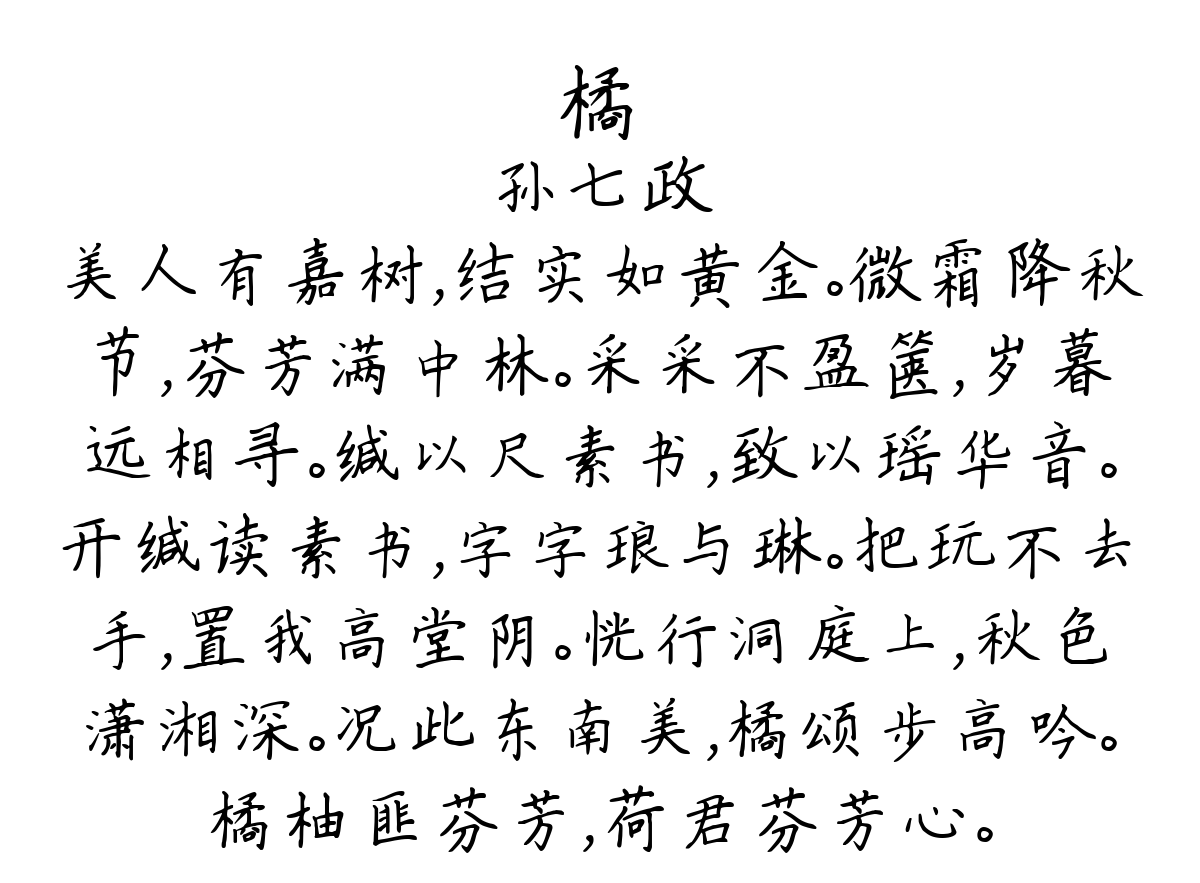 橘
孙七政
美人有嘉树,结实如黄金。微霜降秋
节,芬芳满中林。采采不盈箧,岁暮
远相寻。缄以尺素书,致以瑶华音。
开缄读素书,字字琅与琳。把玩不去
手,置我高堂阴。恍行洞庭上,秋色
潇湘深。况此东南美,橘颂步高吟。
橘柚匪芬芳,荷君芬芳心。